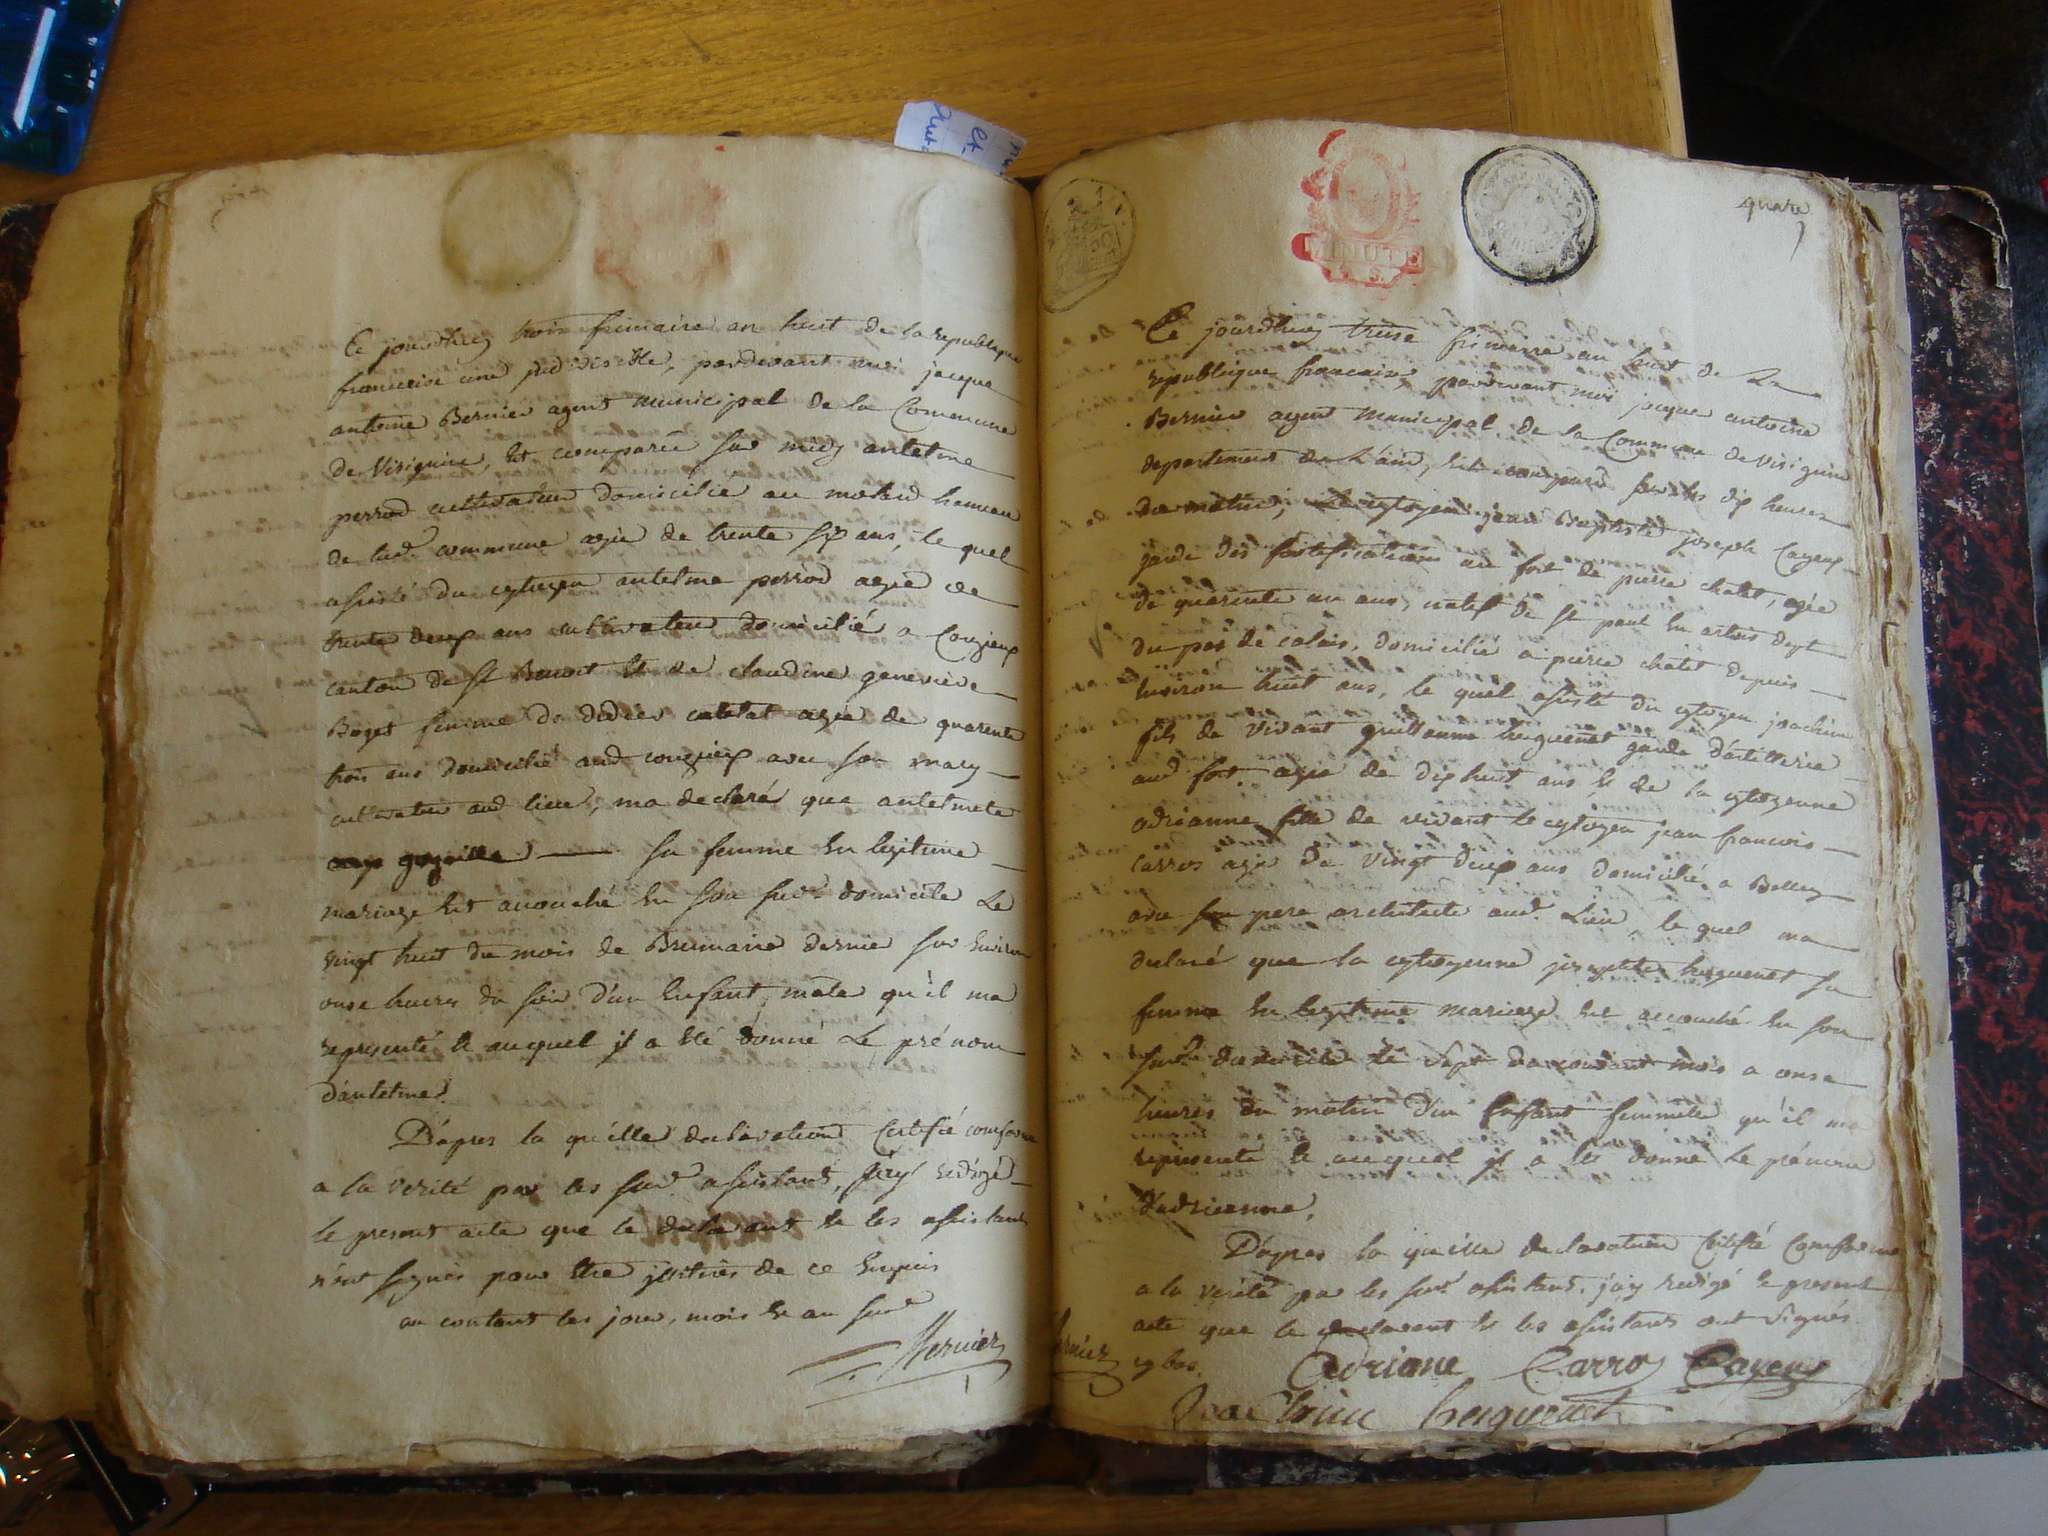 Ce jourdhuy trois frimaire an huit de la republique
francaise une indivisible, pardevant moi jacque
antoine Bernier agent municipal de la Commune
de Virignin, est comparu sur midy antelme
perrod cultivateur domicilié au molard hameau
de lad. commune agée de trente six ans, le quel
assisté du cytoyen antelme perrod agée de
trente deux ans cultivateur domicilié a Conzieux
canton de St Benoit et de claudine genevieve
Boget femme de didier agée de quarente
trois ans domicilié aud conzieux avec son mary
cultivateur aud lieu, ma declaré que antelmete
sa femme en legitime
mariage est accouché en son sud. domicile Le
vingt huit du mois de Brumaire dernier sur environ
onse heures du soir d'un Enfant mâle qu'il ma
representé et auquel il a été donné Le prénom
d'antelme.
D'apres la quélle declaration Certifié conforme
a la verité par les sud. assistants, j'ay redigé
le present acte que le declarant et les assistants
n'ont signés pour être illitérés de ce enquis
au contant les jour, mois et an sud.
Bernier
quatre
MINUTE
Ce jourdhuy treise frimaire an huit de La
republique francaise, pardevant moi jacque antoine
Bernier agent municipal de la Commune de virignin
departement de L'ain, est comparu sur les dix heures
du matin, Le cytoyen jean Baptiste joseph Cayeux
garde des fortifications au fort de pierre chatel, agée
de quarente un ans, natif de St paul en artois dept
du pas de calais, domicilié a pierre châtel depuis
environ huit ans, le quel assisté du cytoyen joachim
fils de vivant guillaume huguenet garde d'artillerie
aud fort agée de dix huit ans et de la cytoyenne
adrianne fille de vivant le cytoyen jean francois
Carros agée de vingt deux ans domicilié a Belley
avec son pere architecte aud. Lieu, le quel ma
declaré que la cytoyenne huguenet sa
femme en legitime mariage est accouché en son
sud. domicile le sept du courant mois a onse
heures du matin d'un Enfant femmelle qu'il ma
representé et auquel il a été donné Le prénom
d'adrianne,
D'apres la quélle declaration Certifié Conforme
a la verité par les sud. assistants, j'ay redigé le present
acte que le declarant et les assistants ont signés
cy bas.
Adriane Carros Cayeux
Bernier
Joachim huguenet